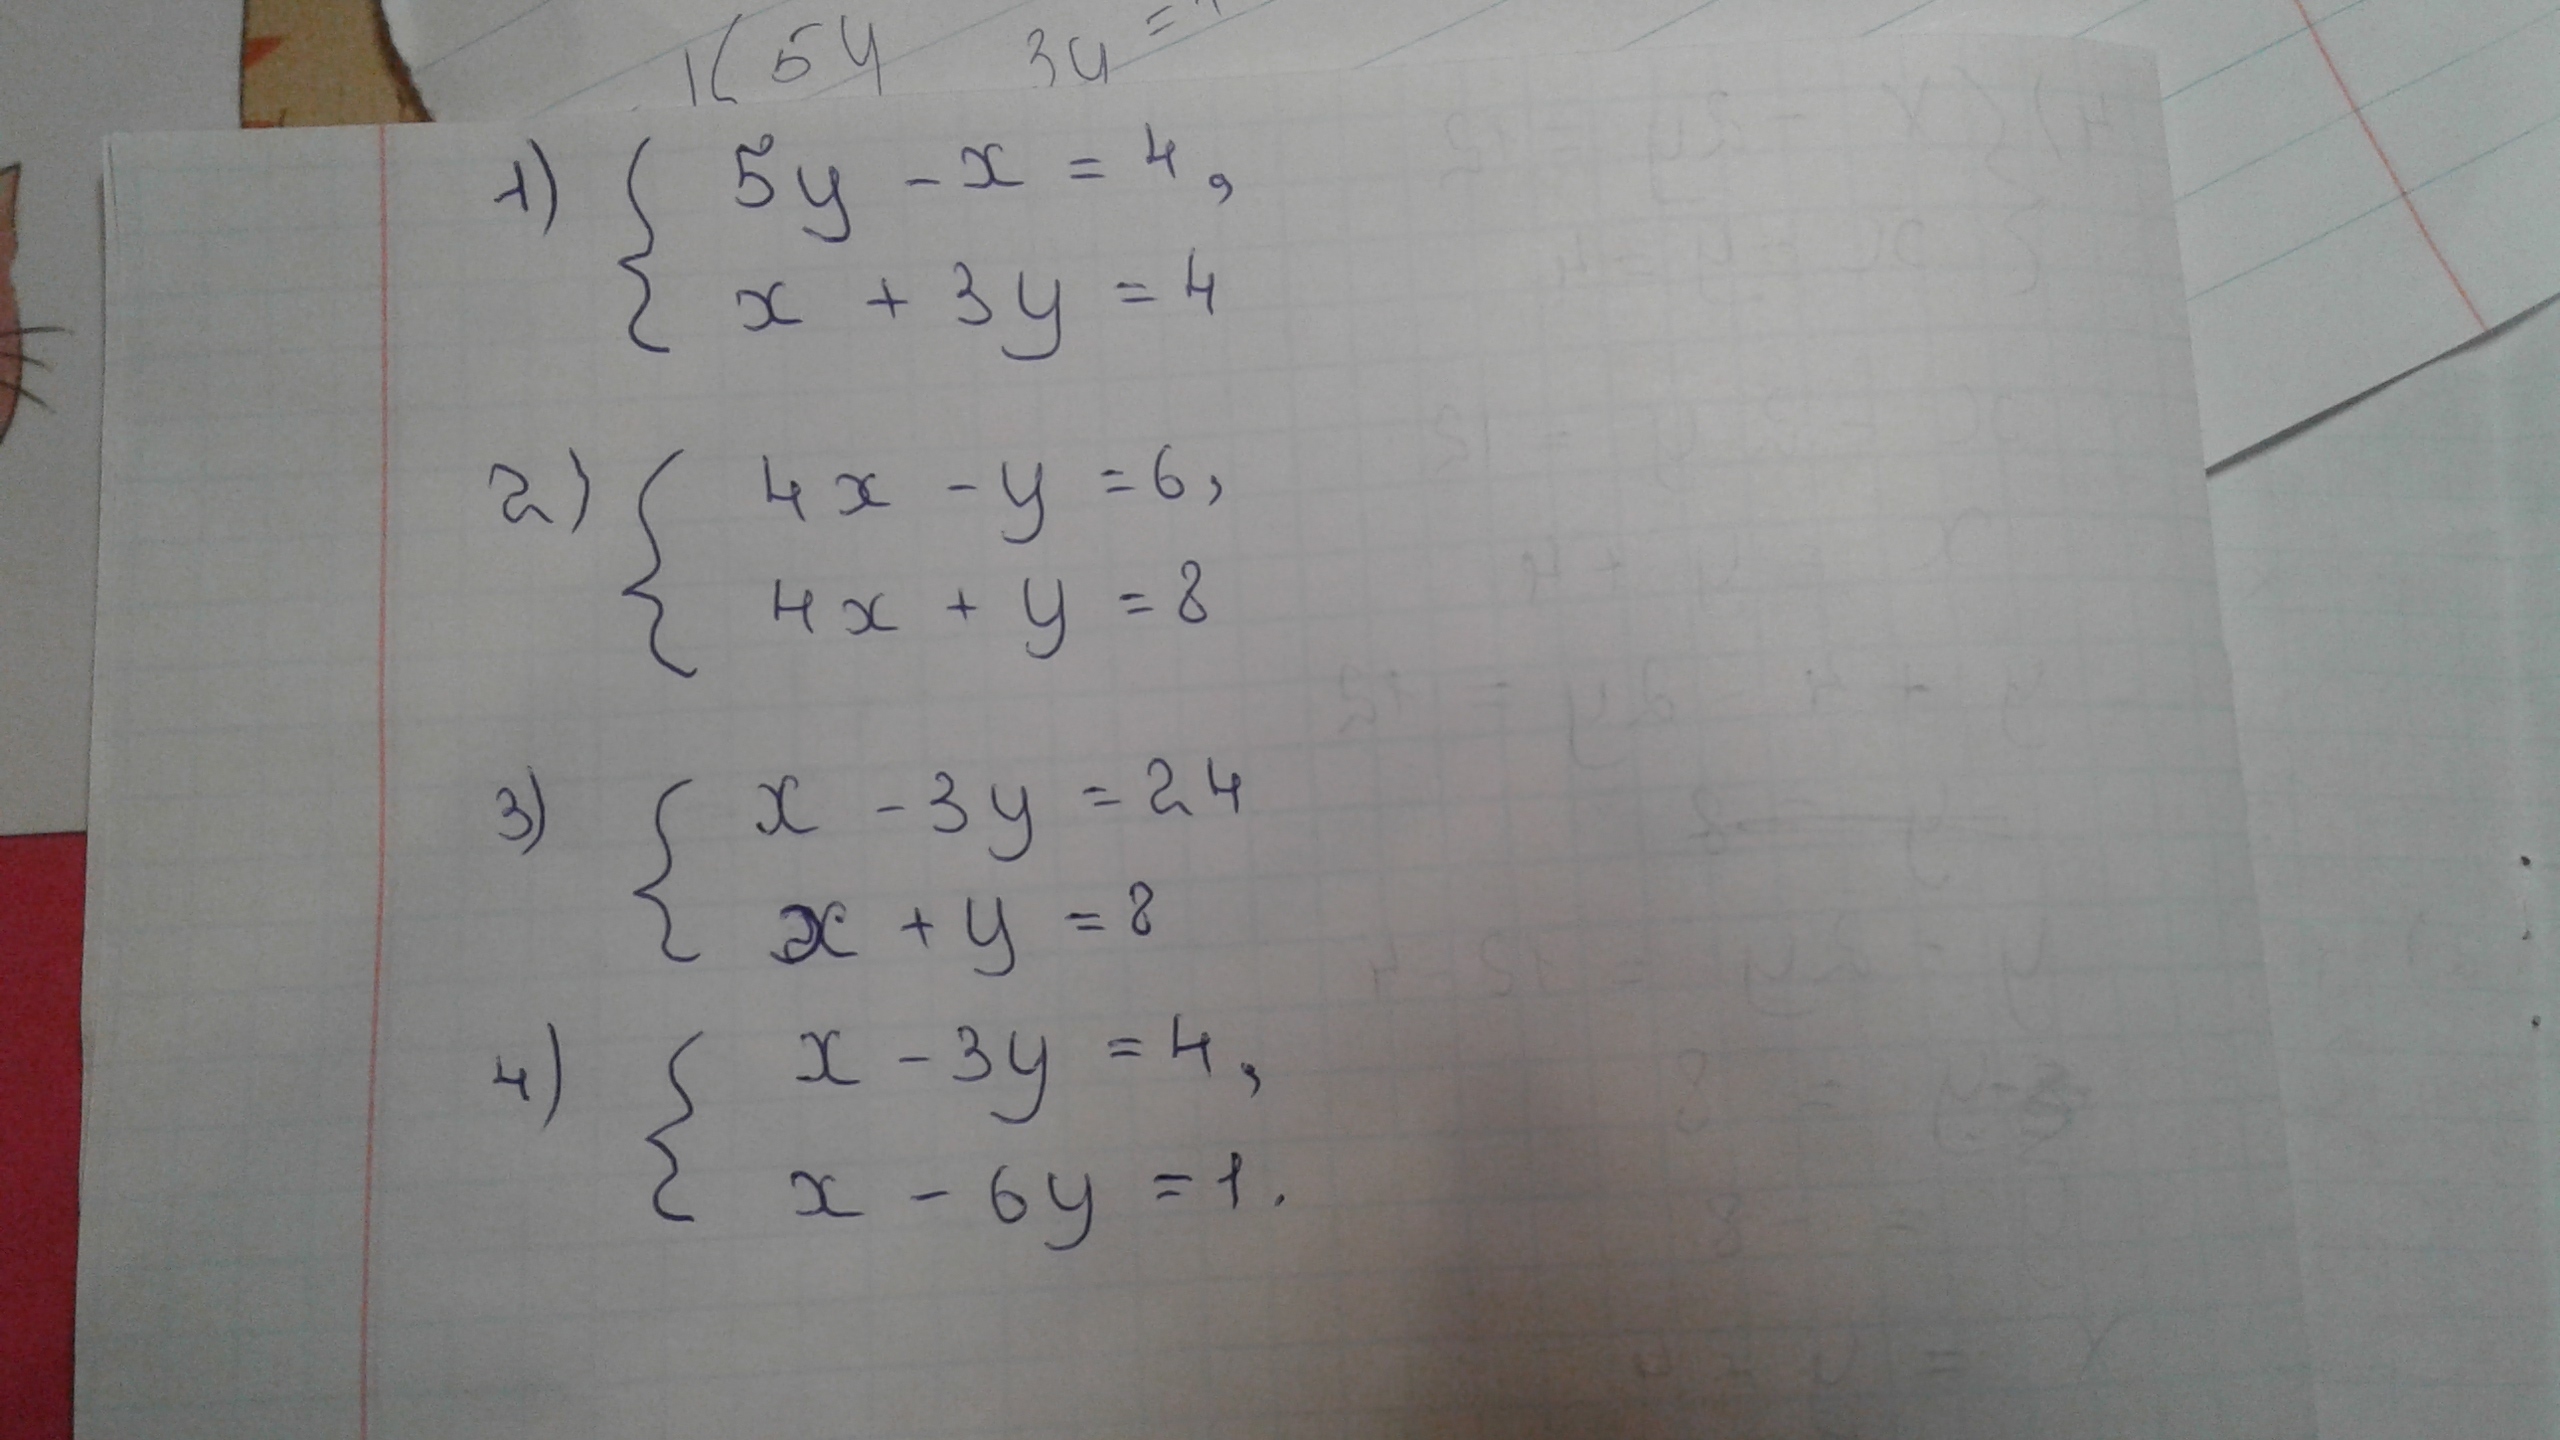 5y 3y =
1) { 5y - x = 4,
x + 3y = 4
2) { 4x - y = 6,
4x + y = 8
3) { x - 3y = 24
x + y = 8
4) { x - 3y = 4,
x - 6y = 1.